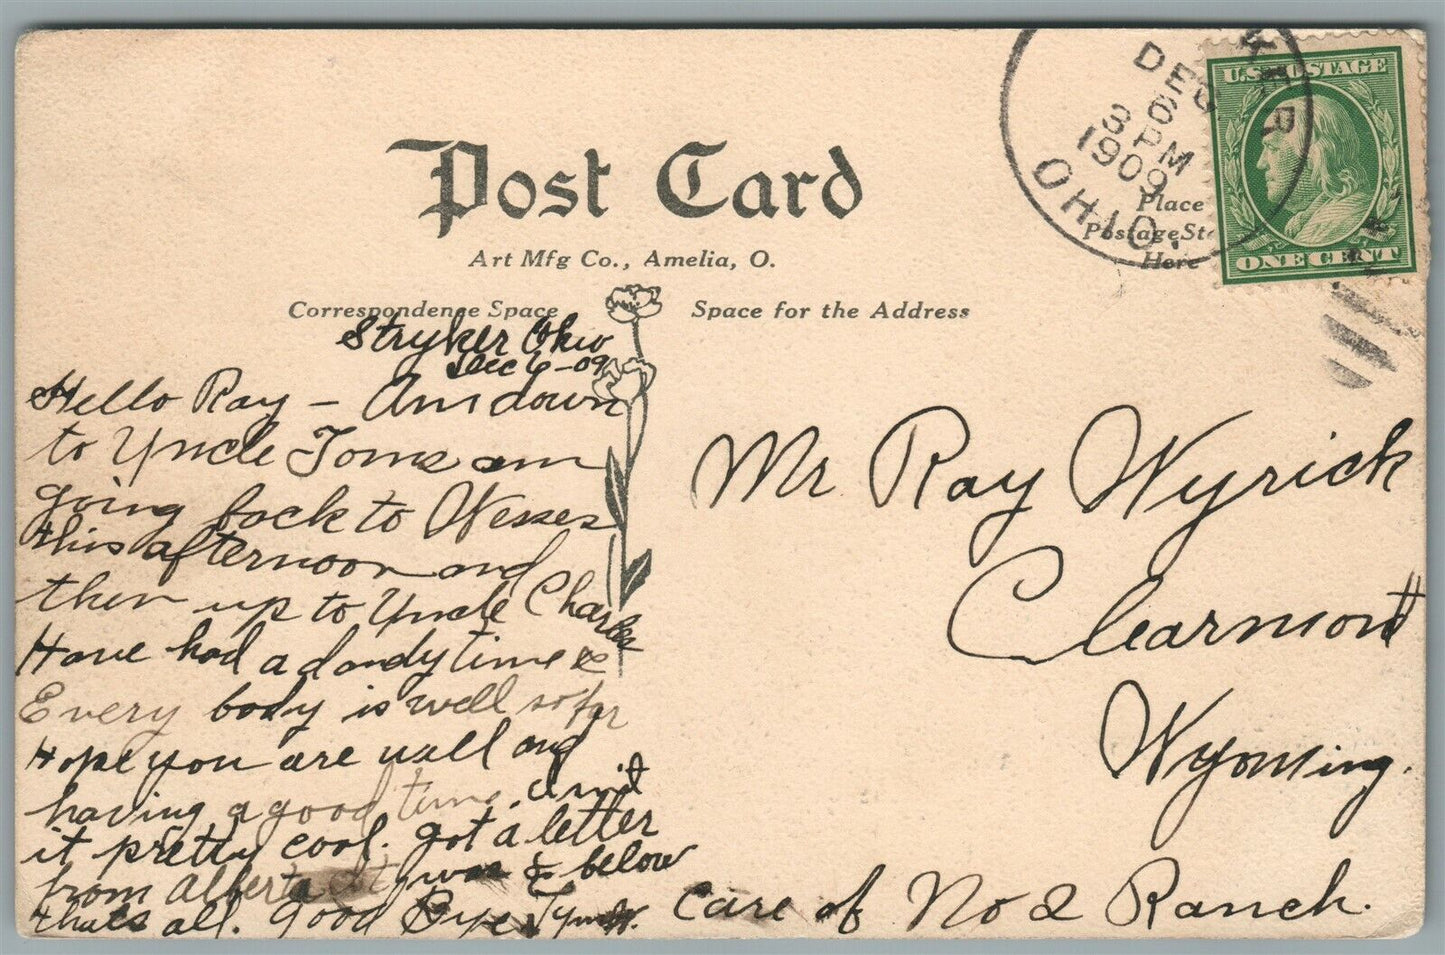 Post Card
Art Mfg Co., Amelia, O.
Correspondence Space
Space for the Address
DEC
6
3 PM
1909
OHIO.
U.S. POSTAGE
ONE CENT
Place
Postage
Here
Stryker Ohio
Dec 6-09
Hello Ray - Am down
to Uncle Toms am
going back to Wesses
this afternoon and
then up to Uncle Charles
Have had a dandy time &
Every body is well so far
Hope you are well and
having a good time.
it pretty cool. got a letter
from Alberta it was & below
thats all. Good Bye
Mr Ray Wyrick
Clearmont
Wyoming.
Care of No 2 Ranch.